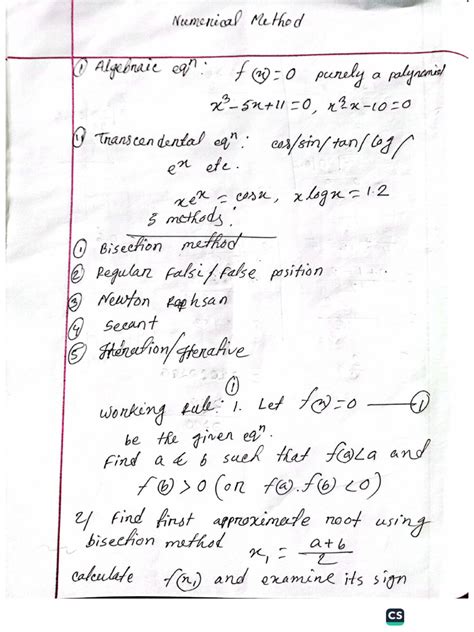 Numerical Method
① Algebraic eqⁿ: f(x)=0 purely a polynomial
x³-5x+11=0, x²-x-10=0
⑪ Transcendental eqⁿ: cos/sin/tan/log/
eˣ etc.
xeˣ = cosx, x logx = 1.2
5 methods:
① Bisection method
② Regular Falsi/False position
③ Newton Raphsan
④ Secant
⑤ Itteration/Iterative
①
Working Rule: 1. Let f(x)=0 —①
be the given eqⁿ.
Find a & b such that f(a)<a and
f(b)>0 (or f(a).f(b)<0)
2/ Find first approximate root using
bisection method x₁ = a+b/2
calculate f(x₁) and examine its sign
CS